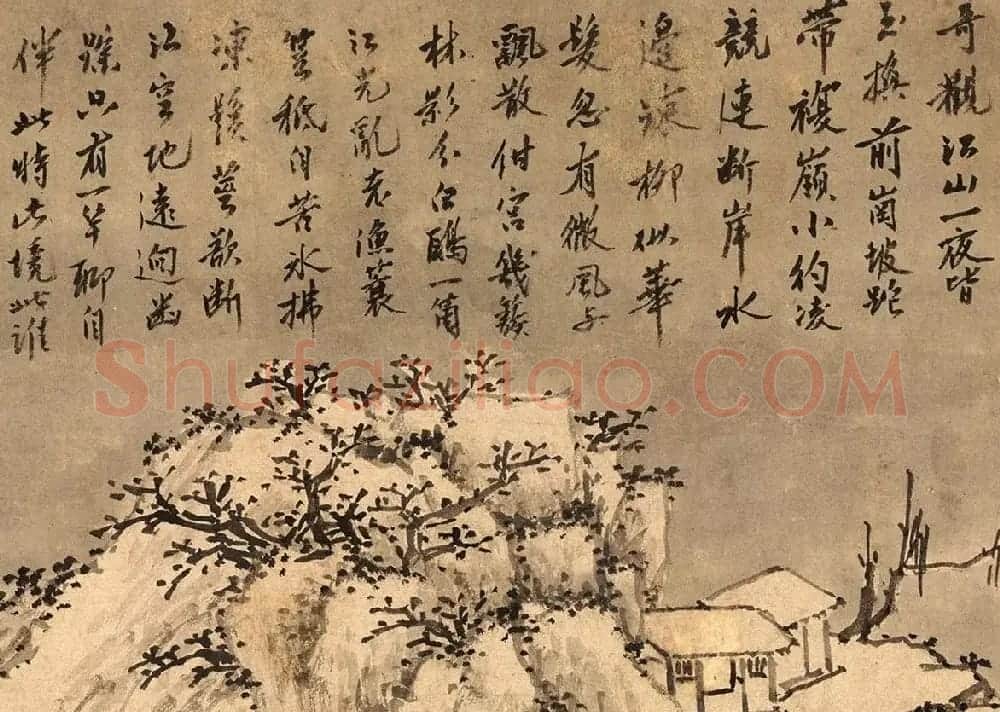 奇觀江山一夜皆
玉換前崗坡跎
帶複嶺小約凌
競連斷岸水
邊疎柳似華
髮忽有微風与
飄散付幾簇
林影分白鷗一箇
江光亂老漁蓑
笠秪自苦冰拂
凍鬚莖欲斷
江空地遠迥幽
蹤只有一竿聊自
伴此時此境此誰
Shufaziliao.COM